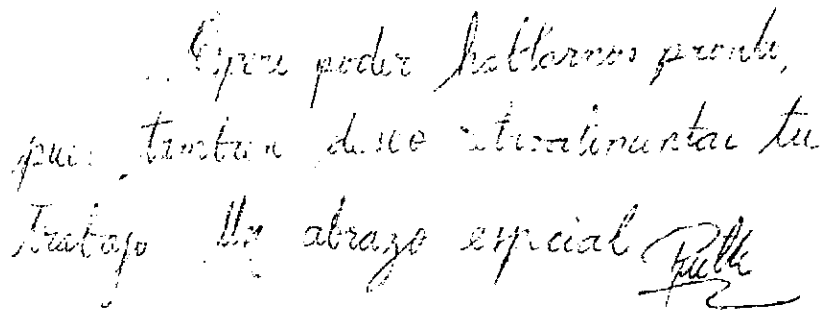 Espero poder hablarnos pronto,
pues también deseo retroalimentar tu
trabajo Un abrazo especial Ruth